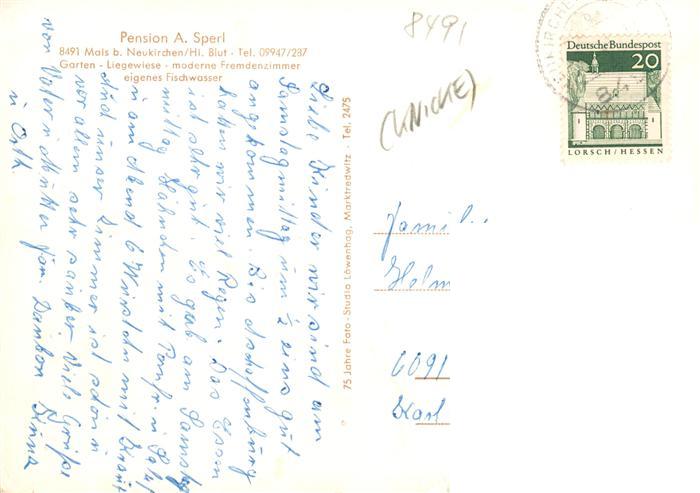 Pension A. Sperl
8491 Mais b. Neukirchen/Hl. Blut - Tel. 09947/287
Garten - Liegewiese - moderne Fremdenzimmer
eigenes Fischwasser
8491
(KNICKE)
Deutsche Bundespost
20
LORSCH/HESSEN
75 Jahre Foto-Studio Löwenhag, Marktredwitz · Tel. 2475
Liebe Kinder wir sind am
Samstagmittag um ½ eins gut
angekommen. Bis
hatten wir viel Regen. Das Essen
ist sehr gut. Es gab am Samstag
mittag Hähnchen mit
u am Abend 6 Würstchen mit Kraut
und unser Zimmer ist schön u
vor allem sehr sauber. Viele Grüße
von Vater u Mutter
u
Famil
Helm
6091
Karl